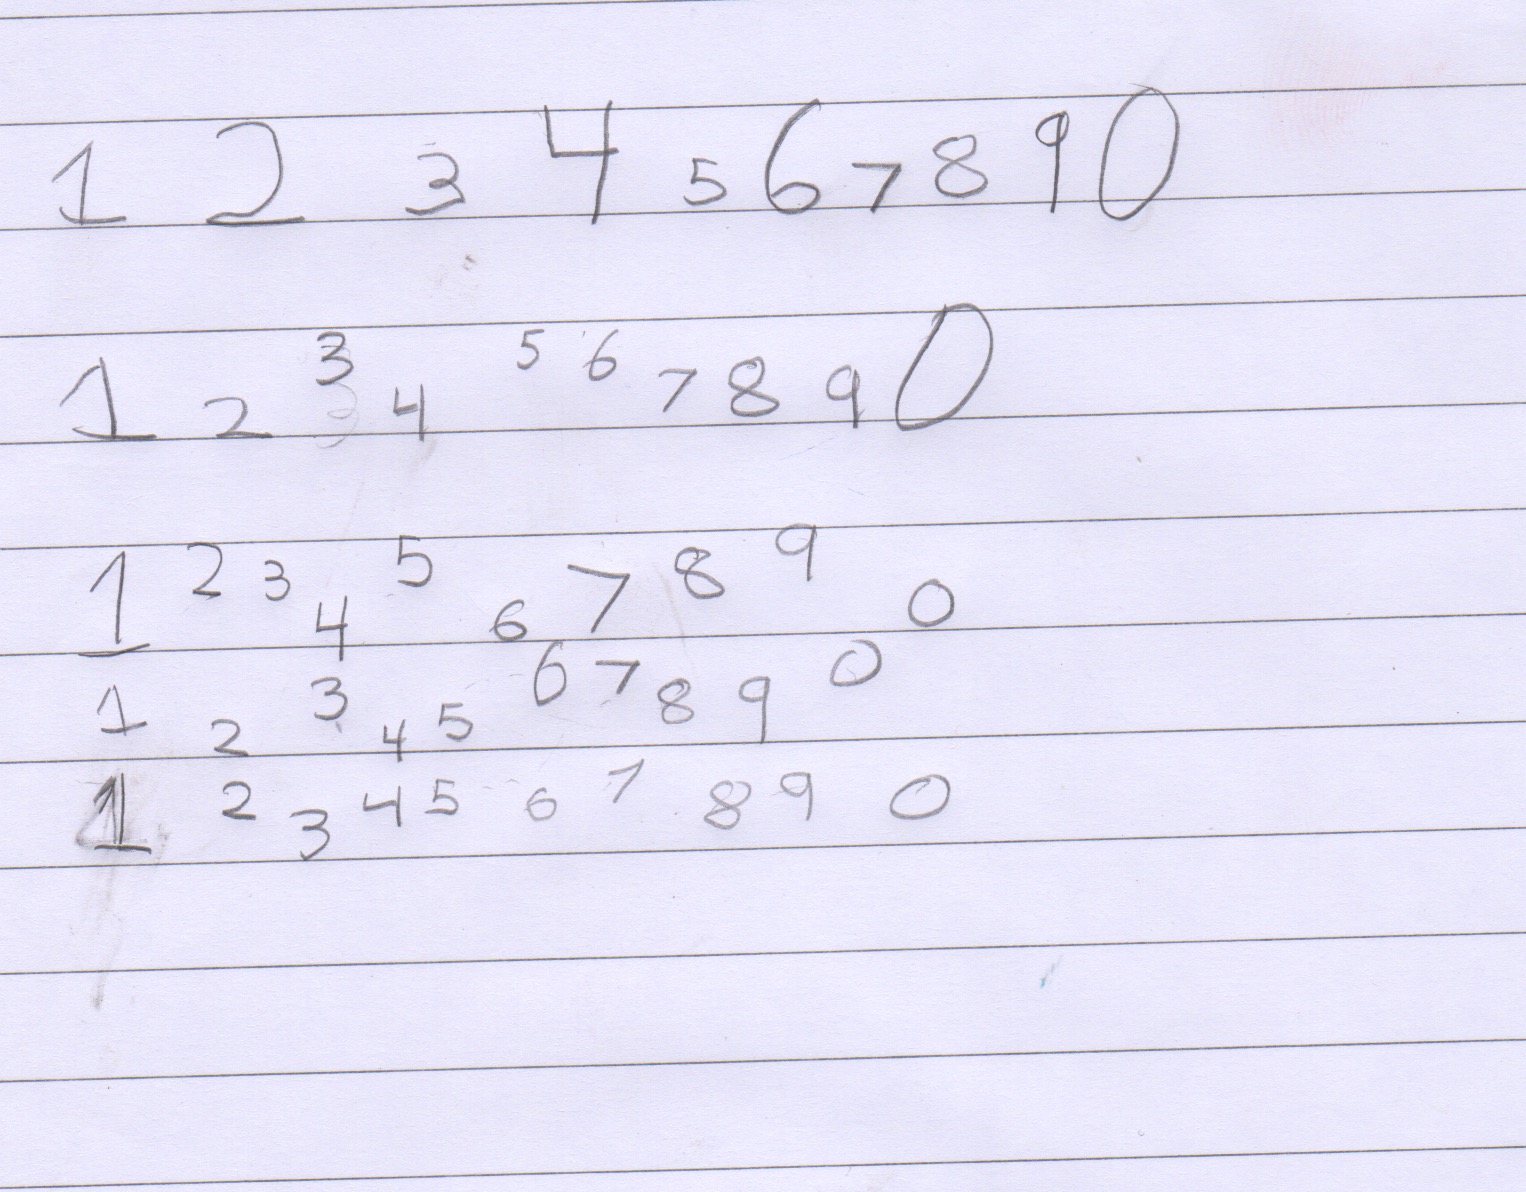 1 2 3 4 5 6 7 8 9 0
1 2 3 4 5 6 7 8 9 0
1 2 3 4 5 6 7 8 9 0
1 2 3 4 5 6 7 8 9 0
1 2 3 4 5 6 7 8 9 0